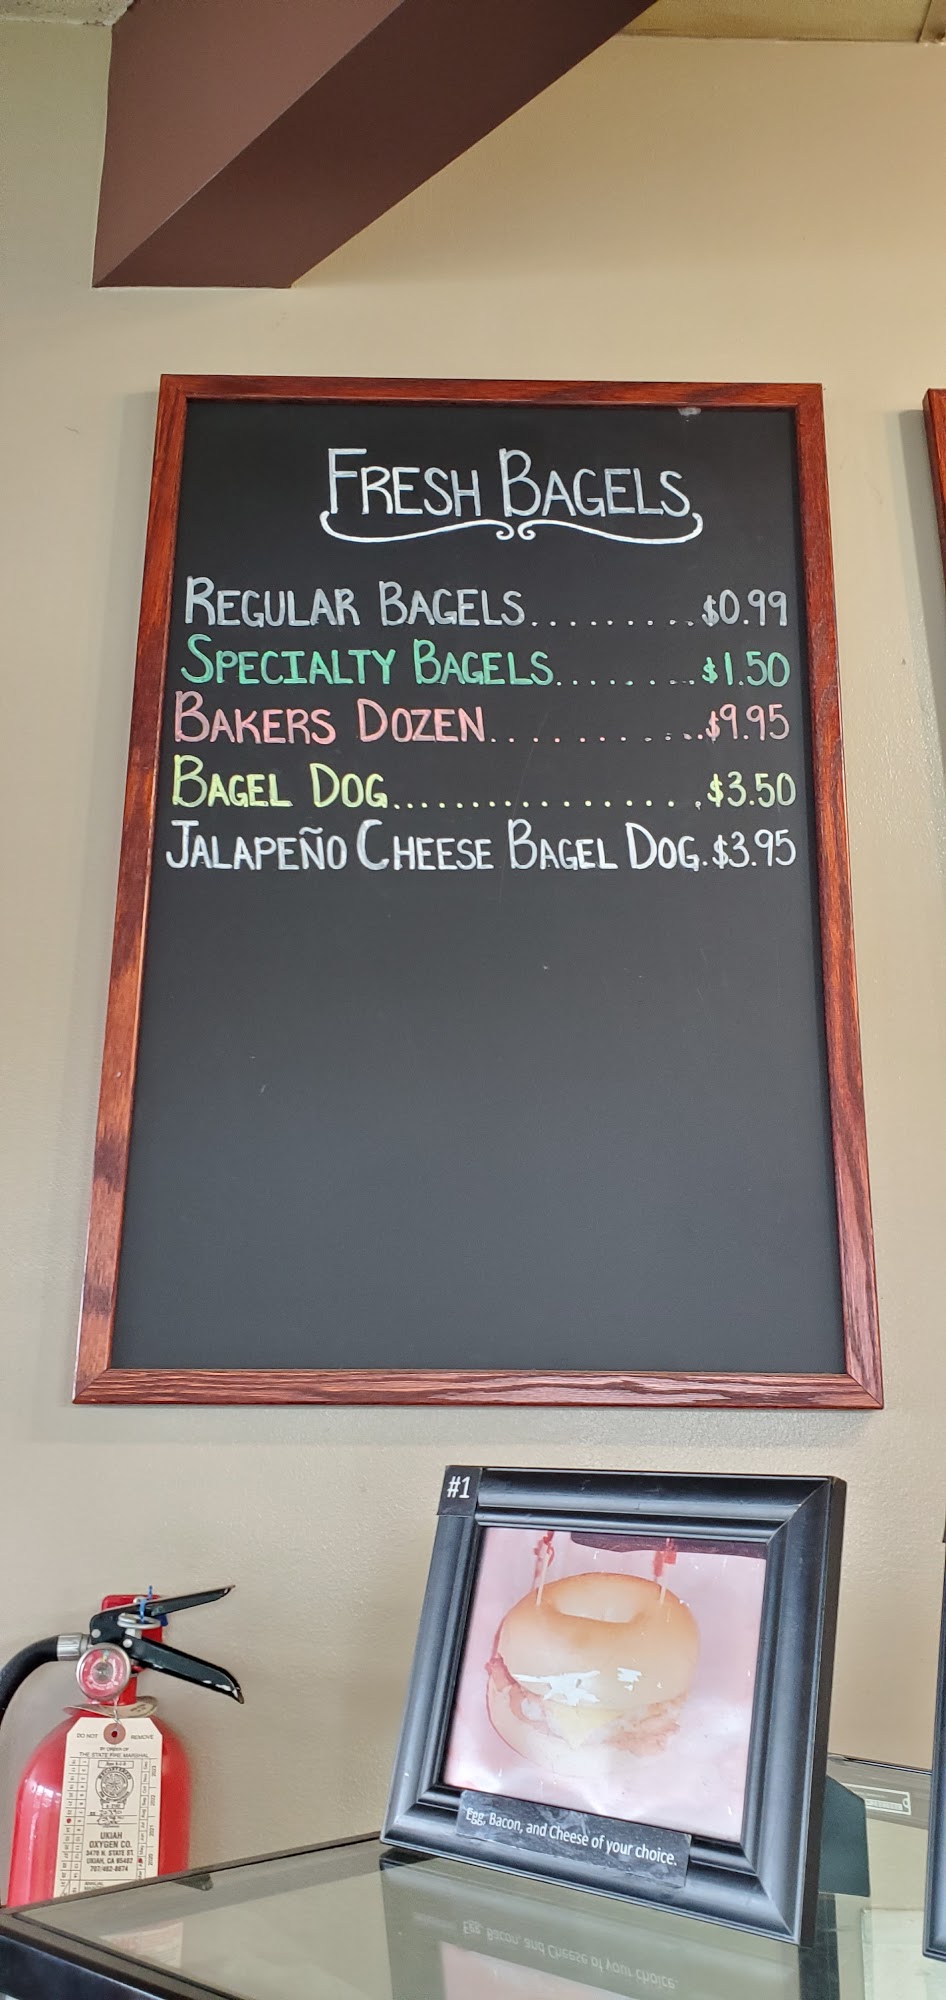 FRESH BAGELS
REGULAR BAGELS.........$0.99
SPECIALTY BAGELS........$1.50
BAKERS DOZEN...........$9.95
BAGEL DOG.................$3.50
JALAPEÑO CHEESE BAGEL DOG.$3.95
#1
Egg, Bacon, and Cheese of your choice.
DO NOT REMOVE
BY ORDER OF
THE STATE FIRE MARSHAL
UKIAH
OXYGEN CO.
UKIAH, CA 95482
707/462-8674